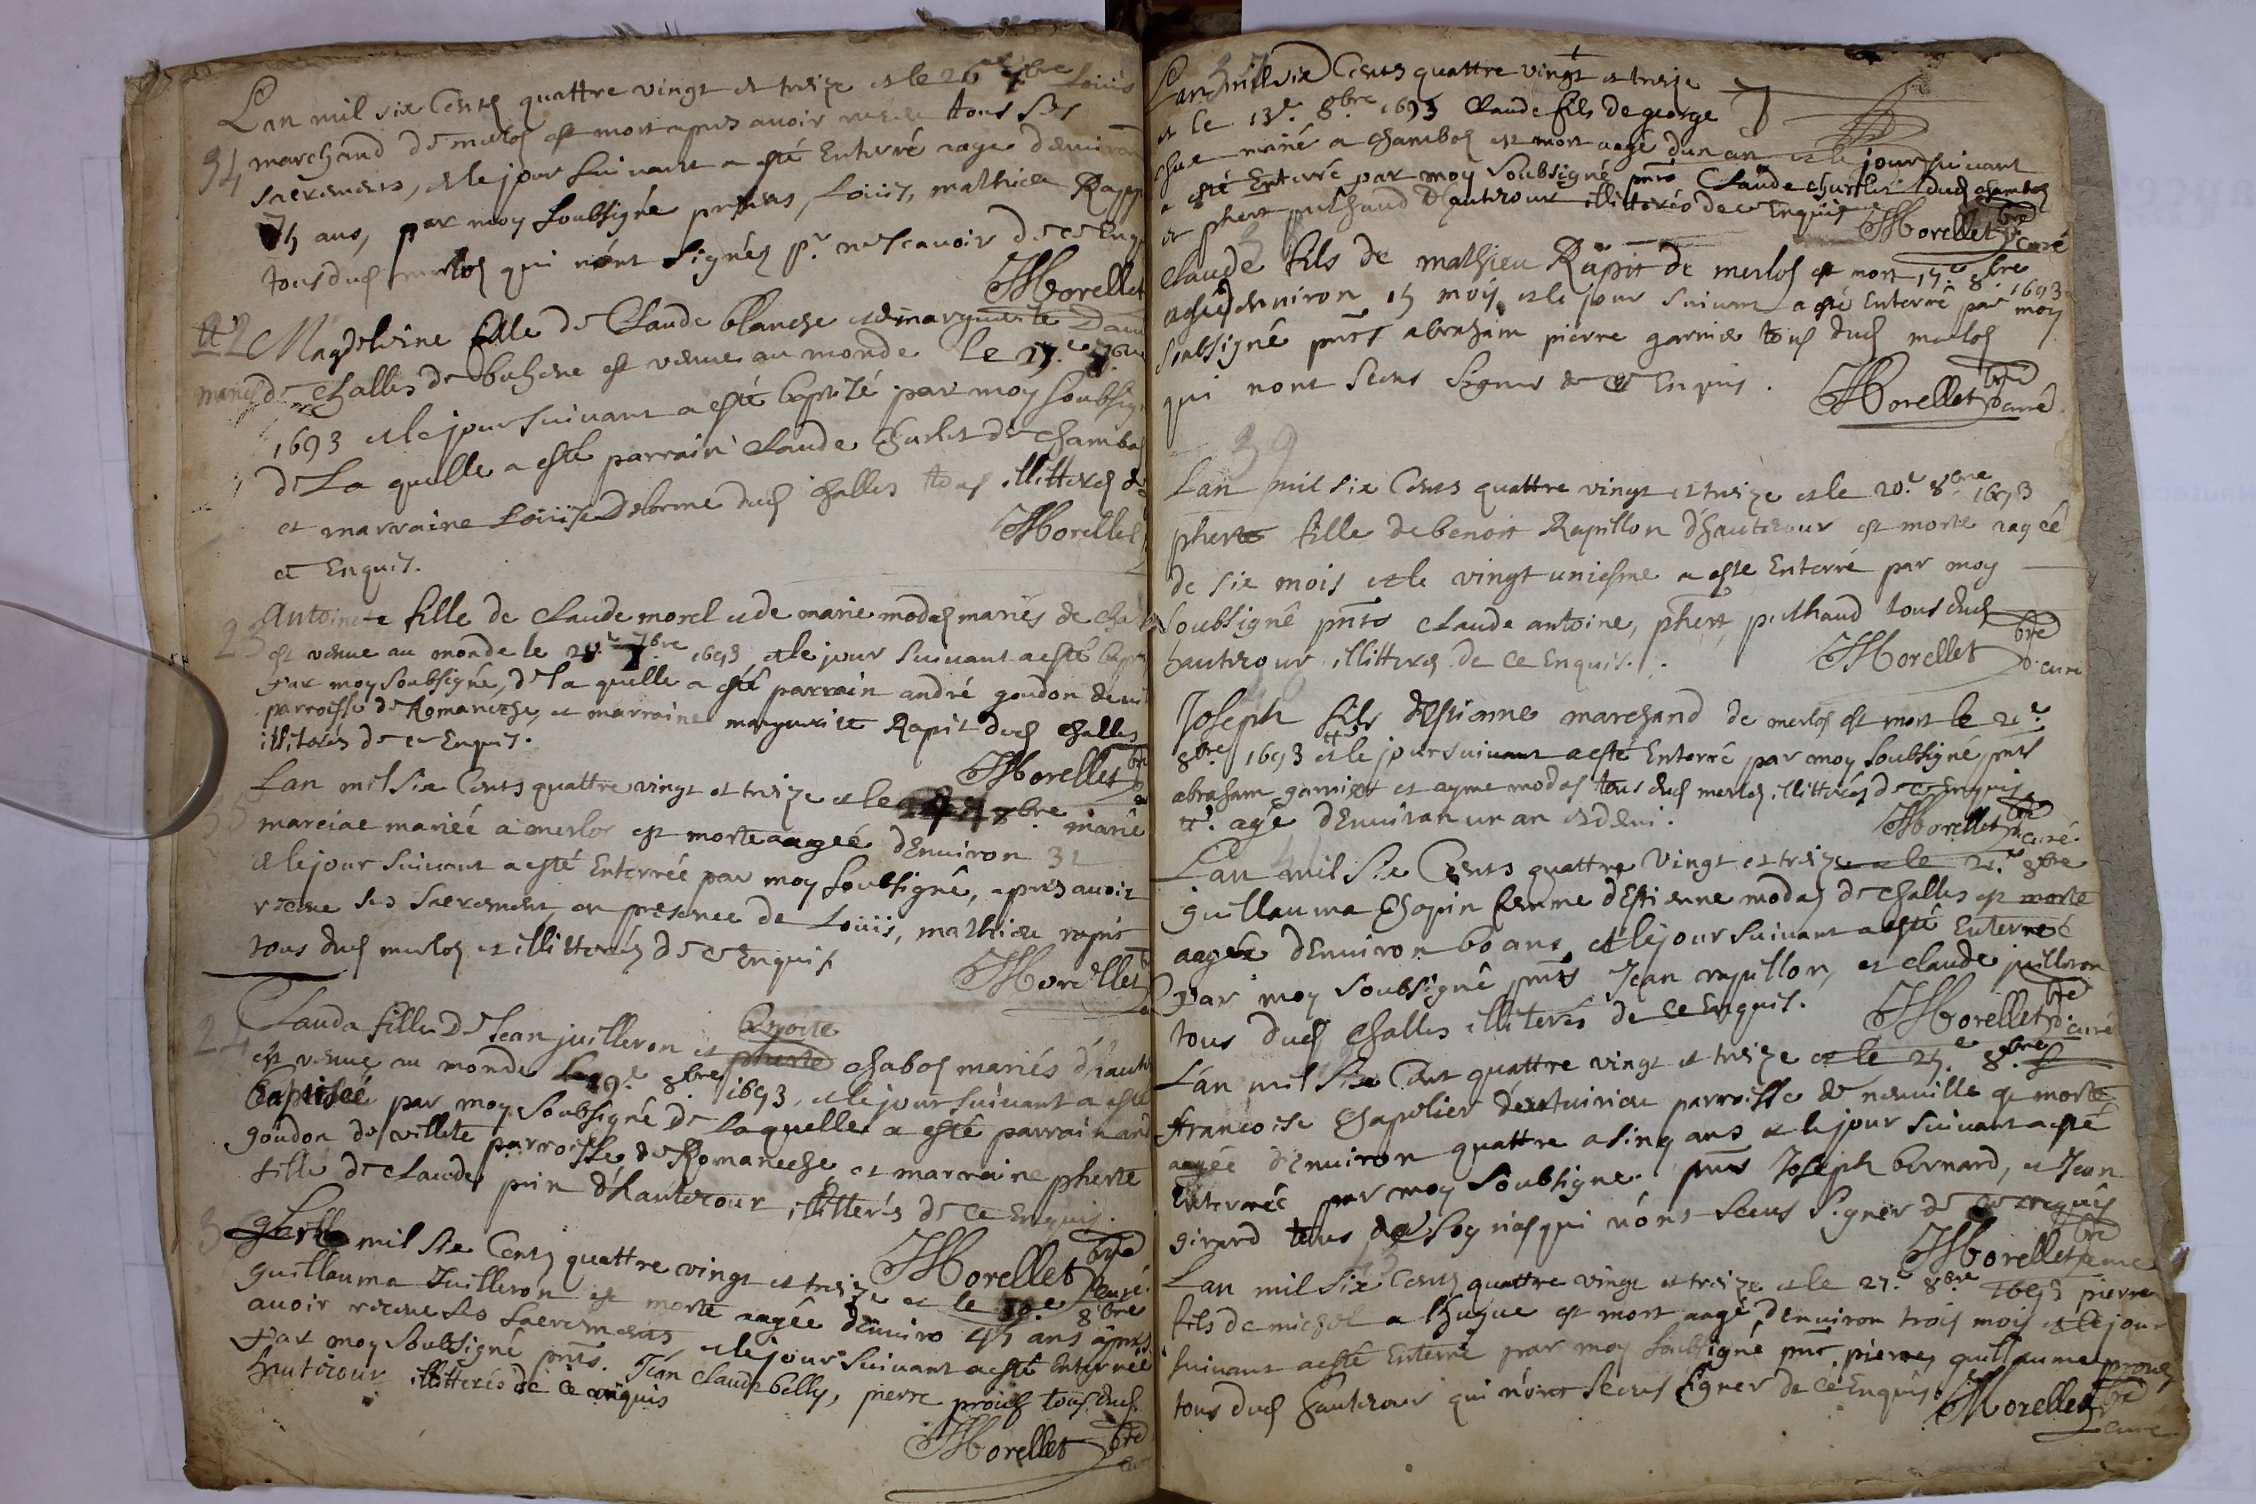 Lan mil six Cents quattre vingt et treize et le 26e 7bre Loüis
34 marchand de merlos est mort apres avoir receu tous ses
sacremens, et le jour suivant a esté Enterré aagé denviron
75 ans, par moy soubsigné presens, Loüis, mathieu Rapp
tous duds merlos qui nont signés pr. ne scavoir de ce Enq
JMorellet
22 Magdeleine fille de Claude blanche et de marguerite Dam
mariés de Challes de bohene est venue au monde le 27.e 7bre
1693 et le jour suivant a esté baptisé par moy soubsig
de La quelle a esté parrain Claude Charlet de Chambos
et marraine Loüise Delorme duds Challes tous illitterés de
ce Enquis.
JMorellet
23 Antoinete fille de Claude morel et de marie modas mariés de Chal
est venue au monde le 28.e 7bre 1693 et le jour suivant a esté bapti
Par moy soubsigné, de la quelle a esté parrain andré goudon de vi
parroisse de Romaneche, et marraine marguerite Rapit duds Challes
illiterés de ce Enquis.
JMorellet bre
Lan mil six Cents quattre vingt et treize et le 8bre marie
35 marciae mariée a merlos est morte aagée dEnviron 32
et le jour suivant a esté Enterrée par moy soubsigné, apres avoir
receue ses sacrement en presence de Loüis, mathieu rapit
tous duds merlos et illitterés de ce Enquis
JMorellet
24 Clauda fille de Jean juilleron et Benoite pherte chabos mariés d'haute
est venue au monde le 9.e 8bre 1693, et le jour suivant a esté
baptisée par moy soubsigné de laquelle a esté parrain and
goudon de villete parroisse de Romaneche et marraine pherte
fille de claude pin d'hautecour illitterés de ce Enquis.
JMorellet bre curé
3 mil six Cents quattre vingt et treize et le 10e 8bre
guillauma Juilleron est morte aagée denviro 45 ans apres
avoir receue les sacremens et le jour suivant a esté Enterrée
Par moy soubsigné pnts. Jean claude billy, pierre proüs tous duds
hautecour illitterés de ce enquis
JMorellet bre
37
Lan mil six Cents quattre vingt et treize
et le 13e. 8bre 1693 Claude fils de george
marié a chambos est mort aagé dun an et le jour suivant
a esté Enterré par moy soubsigné pnts Claude charlet duds chambos
et phert puthaud d'hautecour illitterés de ce Enquis
JMorellet bre curé
38
Claude fils de mathieu Rapit de merlos est mort 17e 8bre 1693
agé denviron 15 mois et le jour suivant a esté Enterré par moy
soubsigné pnts abraham pierre garnier tous duds merlos
qui nont sceus signer de ce Enquis.
JMorellet bre curé
39
Lan mil six Cents quattre vingt et treize et le 20e 8bre 1693
pherte fille de benoit Rapillon d'hautecour est morte aagée
de six mois et le vingt uniesme a esté Enterré par moy
soubsigné pnts Claude antoine, phert, puthaud tous duds
hautecour illitterés de ce Enquis.
JMorellet bre curé
Joseph fils d'Estienne marchand de merlos est mort le 21e
8bre 1693 tt et le jour suivant a esté Enterré par moy soubsigné pnts
abraham garnier et ayme modas tous duds merlos illitterés de ce Enquis
tt. agé d'Environ un an et demi.
JMorellet bre curé
Lan mil six Cents quattre vingt et treize et le 21e 8bre
guillauma Chapin femme d'Estienne modas de Challes est morte
aagée d'Environ 60 ans et le jour suivant a esté Enterreé
Par moy soubsigné pnts Jean rapillon, et Claude juilleron
tous duds Challes illiterés de ce Enquis.
JMorellet bre curé
Lan mil six Cent quattre vingt et treize et le 25e 8bre
francoise Chapelier parroisse de neuville est morte
aagée d'Environ quattre a sinq ans et le jour suivant a esté
Enterreé par moy soubsigné pnts Joseph bernard, et Jean
girard tous qui nont sceus signer de ce enquis
JMorellet bre curé
Lan mil six Cents quattre vingt et treize et le 27e 8bre 1693 pierre
fils de michel a lhugue est mort aagé d'environ trois mois et le jour
suivant a esté Enterré par moy soubsigné pnts, pierre, guillaume proües
tous duds hautecour qui n'ont sceus signer de ce Enquis.
JMorellet bre curé